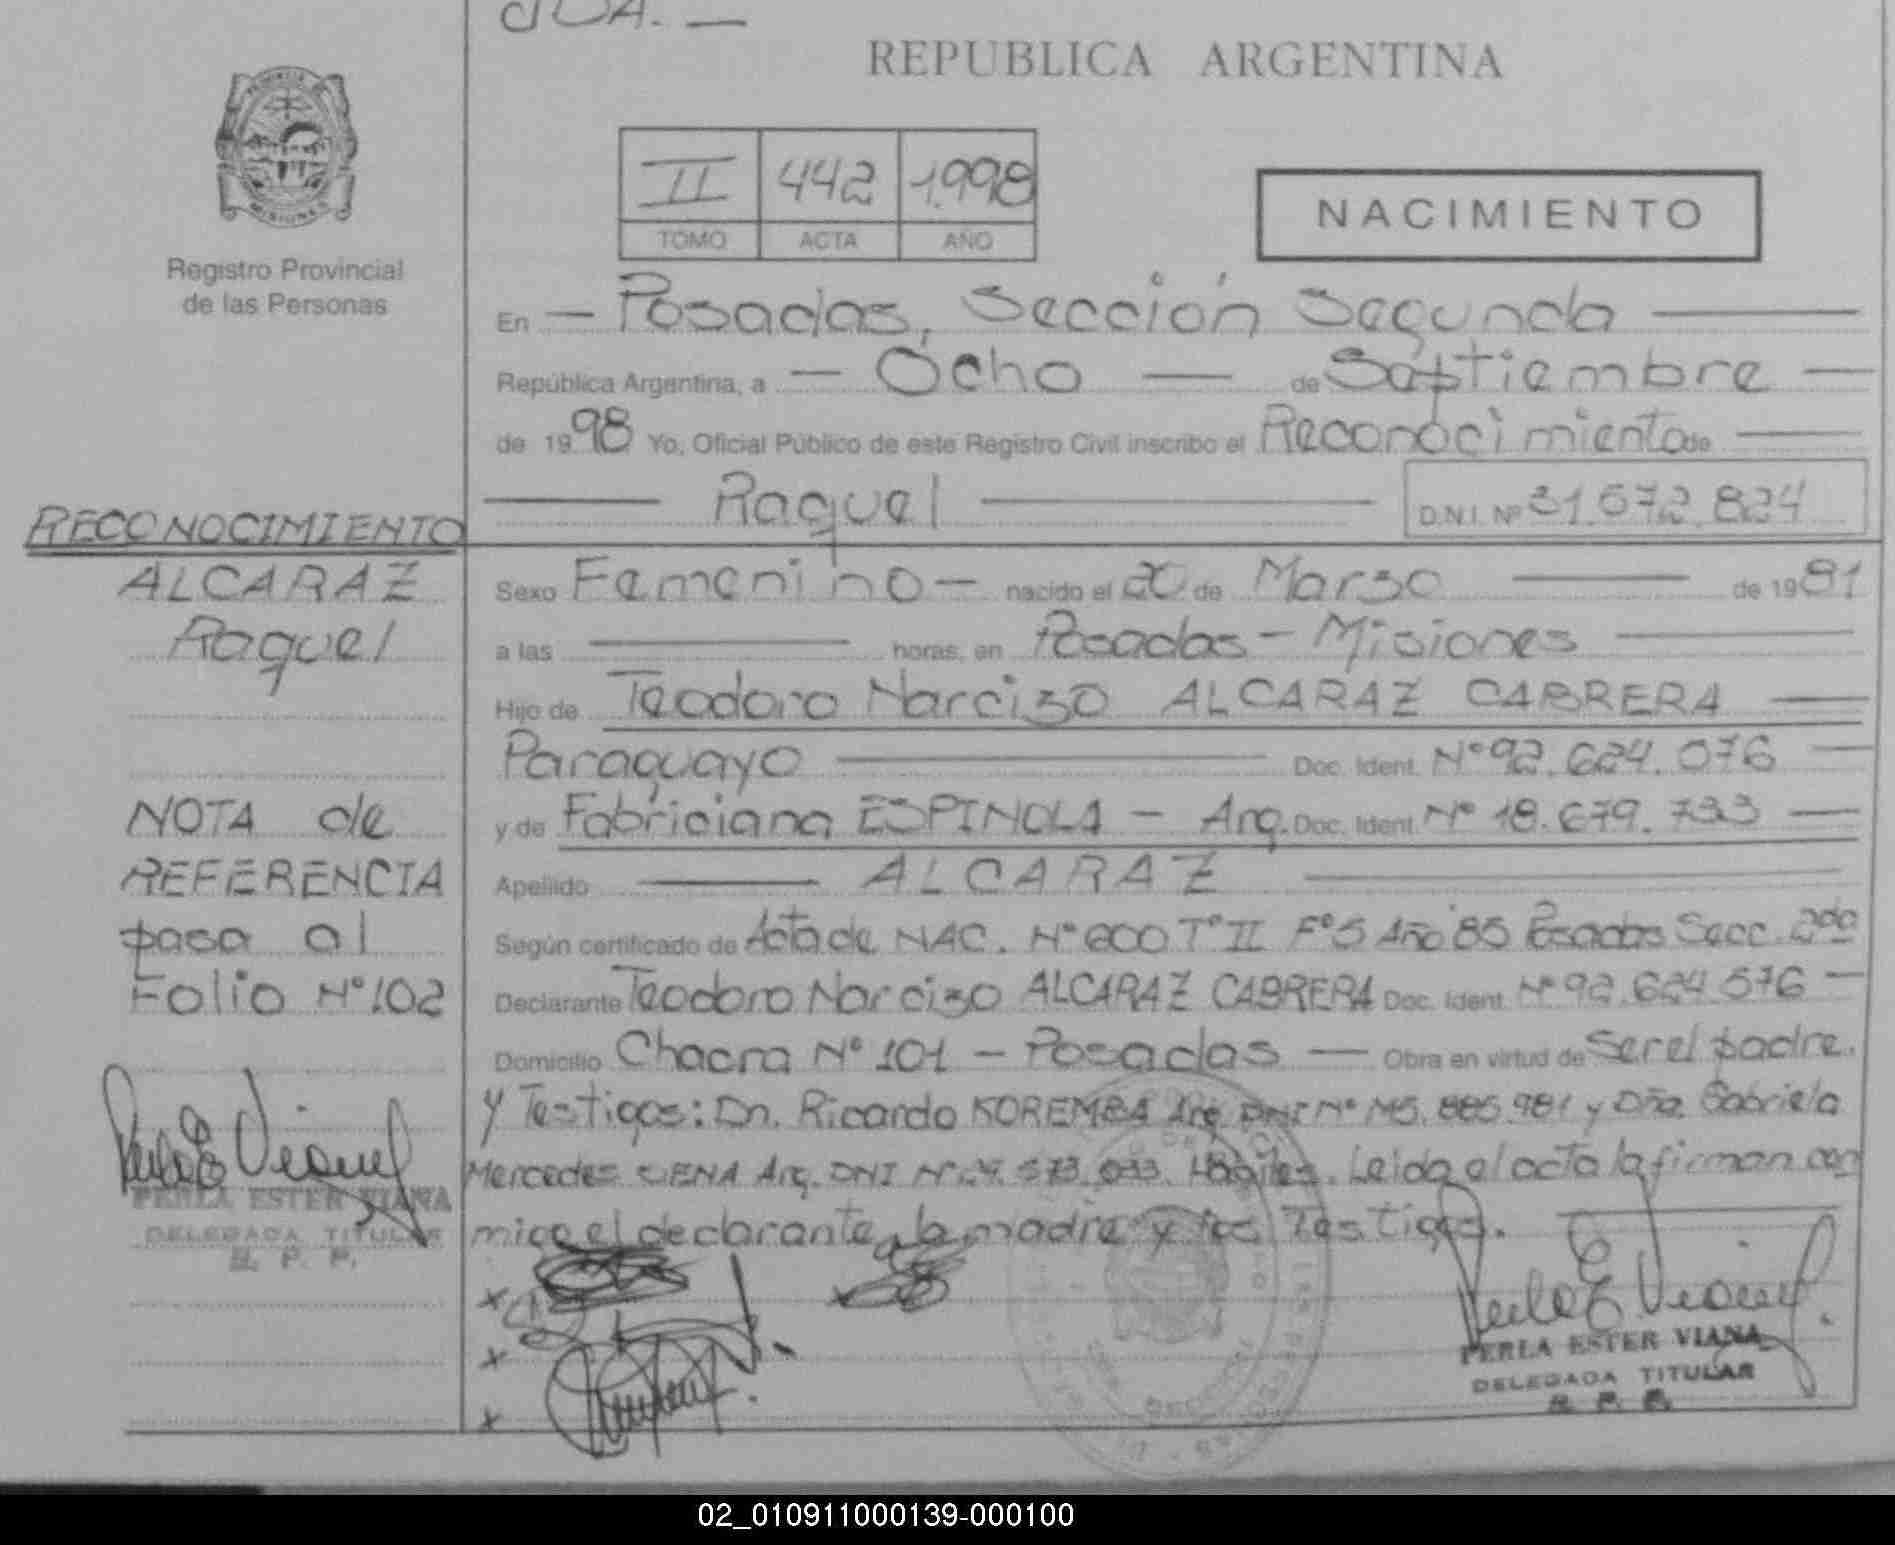 REPUBLICA ARGENTINA
PROVINCIA
MISIONES
Registro Provincial
de las Personas
II 442 1.998
TOMO ACTA AÑO
NACIMIENTO
En — Posadas, Sección Segunda —
República Argentina, a — Ocho — de Septiembre —
de 1998 Yo, Oficial Público de este Registro Civil inscribo el Reconocimiento de —
— Raquel — D.N.I. Nº 31.572.824
RECONOCIMIENTO
ALCARAZ
Raquel
NOTA de
REFERENCIA
pasa al
Folio Nº 102
PERLA ESTER VIANA
DELEGADA TITULAR
R. P. P.
Sexo Femenino — nacido el 20 de Marzo — de 1981
a las — horas, en Posadas - Misiones —
Hijo de Teodoro Narcizo ALCARAZ CABRERA —
Paraguayo — Doc. Ident. Nº 92.624.076 —
y de Fabriciana ESPINOLA — Arg. Doc. Ident. Nº 18.679.733 —
Apellido — ALCARAZ —
Según certificado de Acta de NAC. Nº 600 Tº II Fº 5 Año 85 Posadas Secc. 2da
Declarante Teodoro Narcizo ALCARAZ CABRERA Doc. Ident. Nº 92.624.576 —
Domicilio Chacra Nº 101 — Posadas — Obra en virtud de Ser el padre.
y Testigos: Dn. Ricardo KOREMBA Arg. DNI Nº M5.885.981 y Dña. Gabriela
Mercedes SIENA Arg. DNI Nº 24.573.033. Hábiles. Leida el acta la firman con
migo el declarante, la madre y los Testigos. —
PERLA ESTER VIANA
DELEGADA TITULAR
R. P. P.
02_010911000139-000100